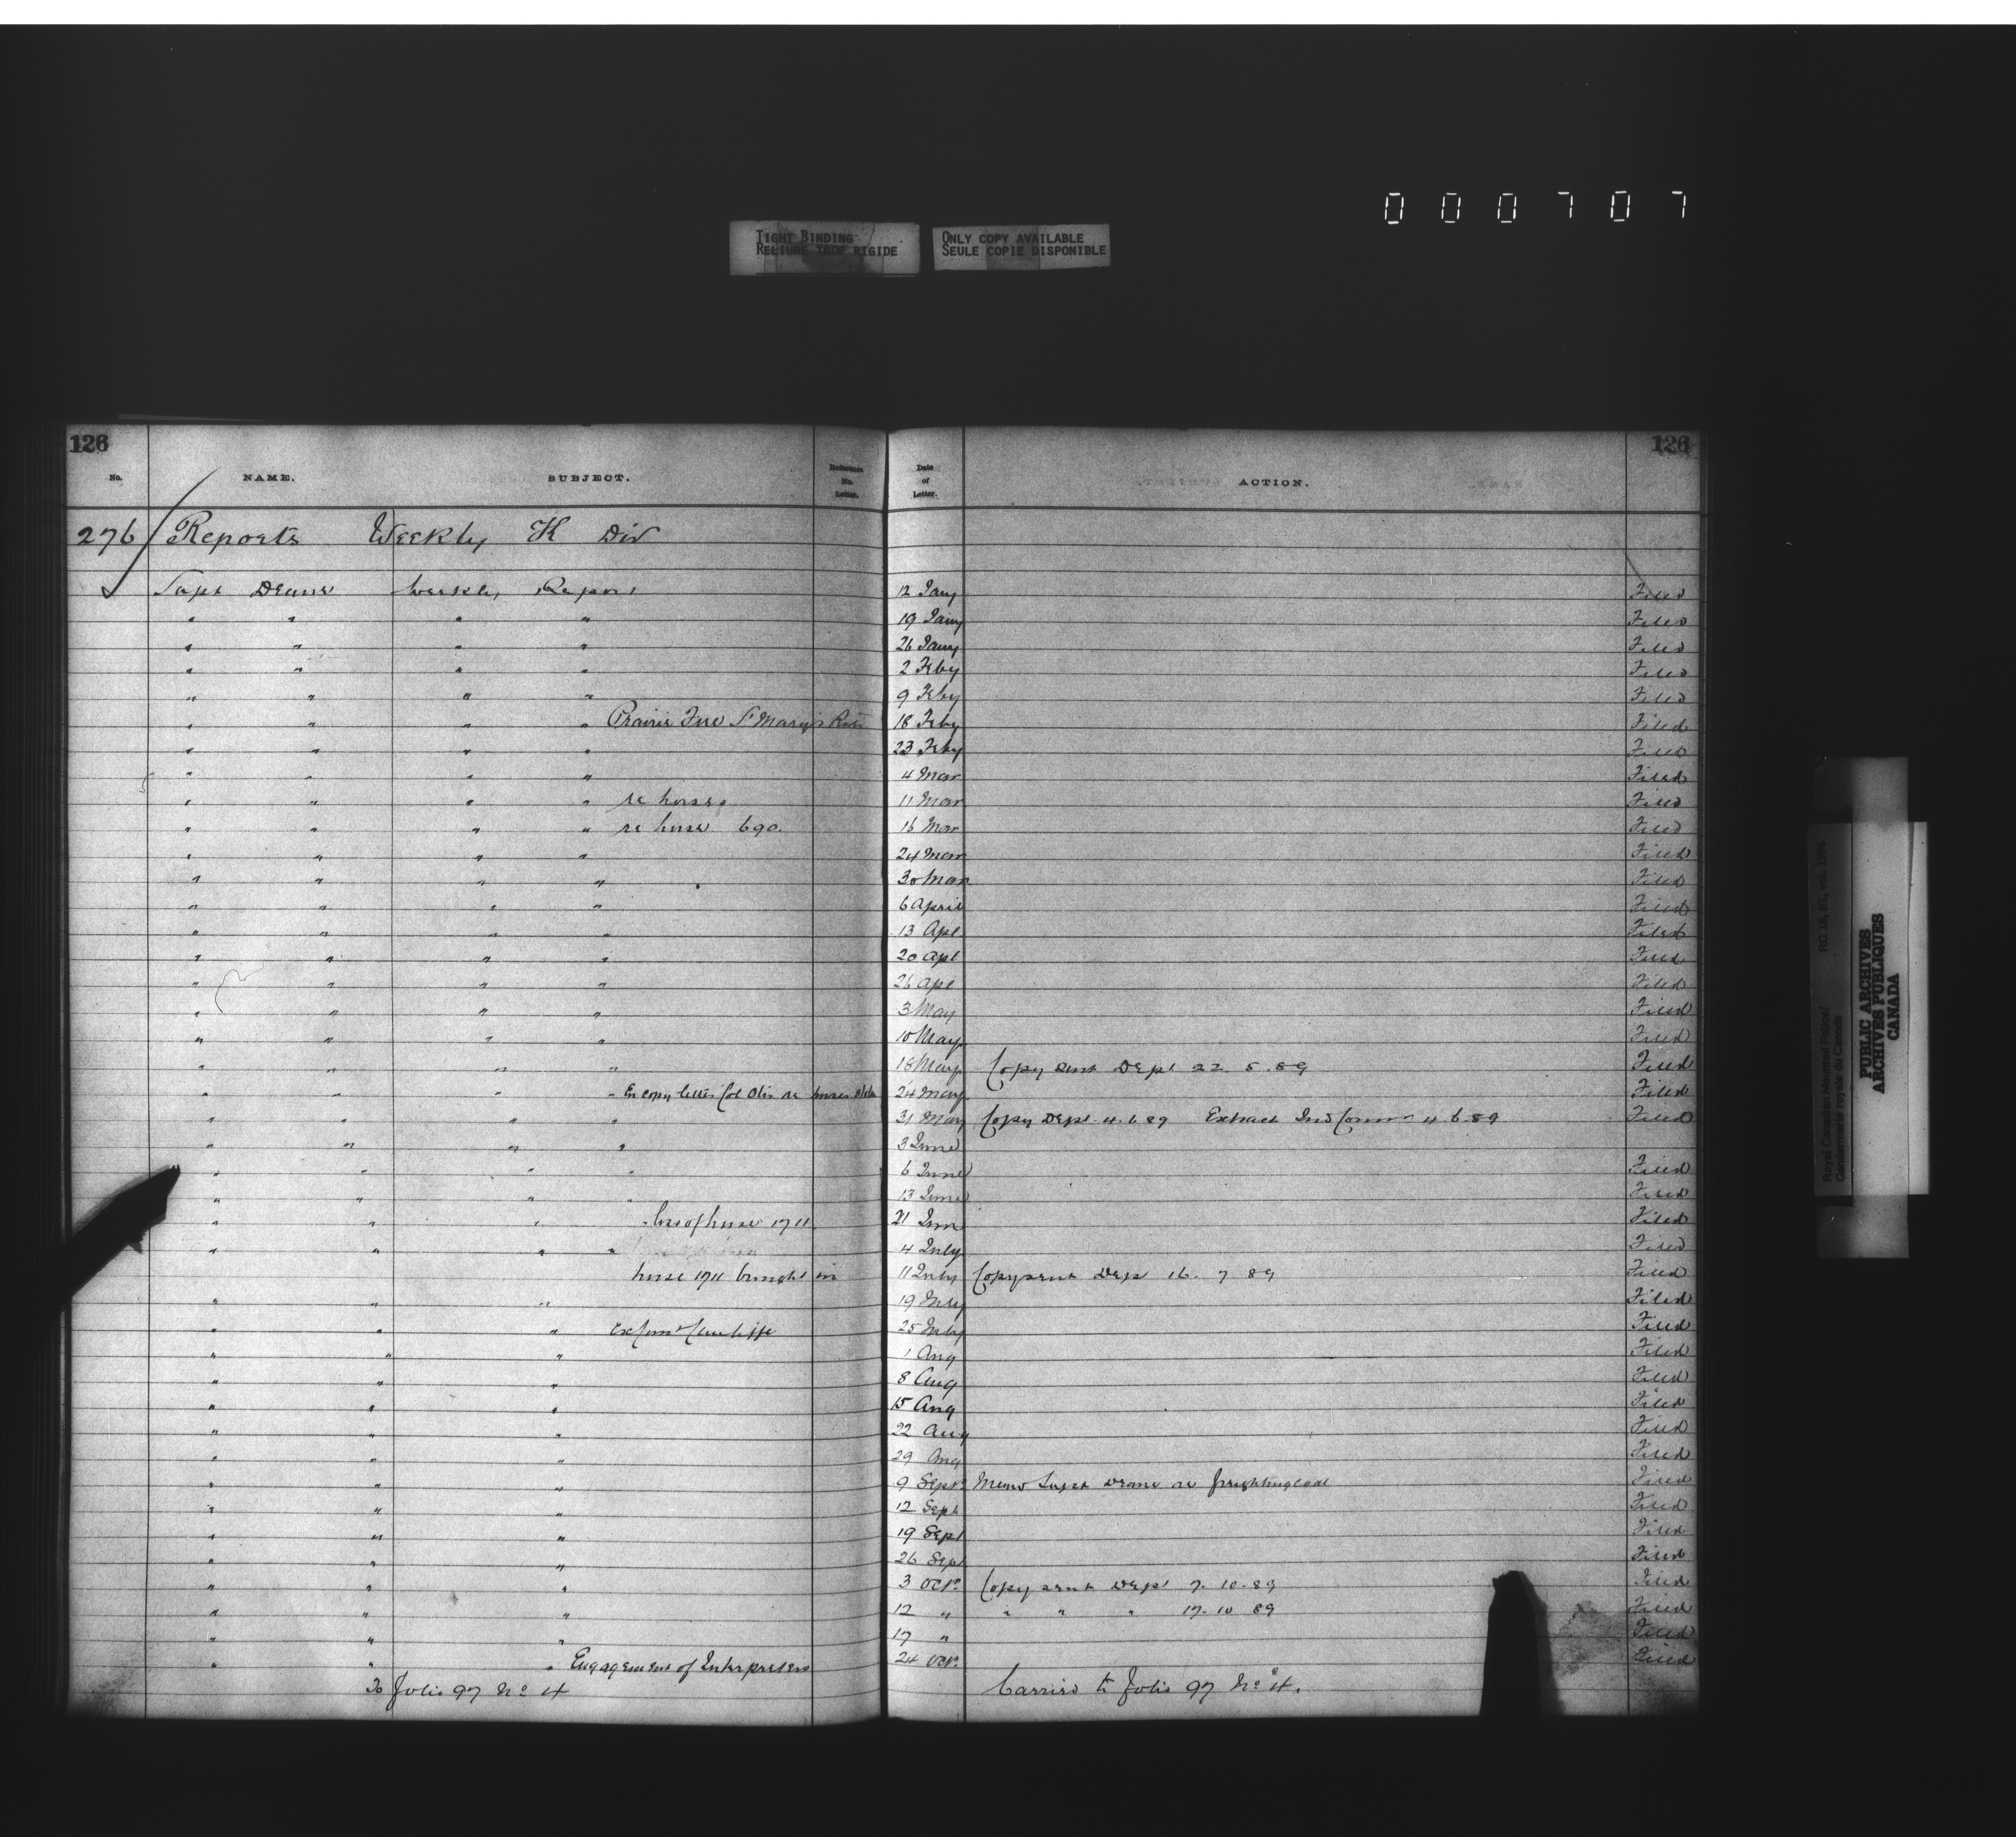 0 0 0 7 0 7
TIGHT BINDING
RELIURE TROP RIGIDE
ONLY COPY AVAILABLE
SEULE COPIE DISPONIBLE
126 126
No. NAME. SUBJECT. Reference No. Letter. Date of Letter. ACTION.
276 Reports Weekly K Div
Supt Deane Weekly Report 12 Jany Filed
" " " " 19 Jany Filed
" " " " 26 Jany Filed
" " " " 2 Feby Filed
" " " " 9 Feby Filed
" " " " Prairie Fire St Mary's River 18 Feby Filed
" " " " 23 Feby Filed
" " " " 4 Mar Filed
" " " " re horses 11 Mar Filed
" " " " re horse 690. 16 Mar Filed
" " " " 24 Mar Filed
" " " " 30 Mar Filed
" " " " 6 April Filed
" " " " 13 Apl Filed
" " " " 20 Apl Filed
" " " " 26 Apl Filed
" " " " 3 May Filed
" " " " 10 May Filed
" " " " 18 May Copy sent Dept 22. 5. 89 Filed
" " " " En copy letter Col Otis re horses 24 May Filed
" " " " 31 May Copy Dept. 4. 6 89 Extract Ind Commr 4. 6. 89 Filed
" " " " 3 June
" " " " 6 June Filed
" " " " 13 June Filed
" " " " loss of horse 1711 21 Jun Filed
" " " " 4 July Filed
horse 1711 brought in 11 July Copy sent Dep 16. 7 89 Filed
" " " 19 July Filed
" " " 25 July Filed
" " " 1 Aug Filed
" " " 8 Aug Filed
" " " 15 Aug Filed
" " " 22 Aug Filed
" " " 29 Aug Filed
" " " 9 Sept. Memo Supt Deane re freighting coal Filed
" " " 12 Sept Filed
" " " 19 Sept Filed
" " " 26 Sep Filed
" " " 3 Oct. Copy sent Dept 7. 10. 89 Filed
" " " 12 " " " " 17. 10 89 Filed
" " " 17 " Filed
" " " Engagement of Interpreters 24 Oct. Filed
To folio 97 No 4 Carried to folio 97 No 4.
Royal Canadian Mounted Police/
Gendarmerie royale du Canada
RG 18, B1, vol.
PUBLIC ARCHIVES
ARCHIVES PUBLIQUES
CANADA